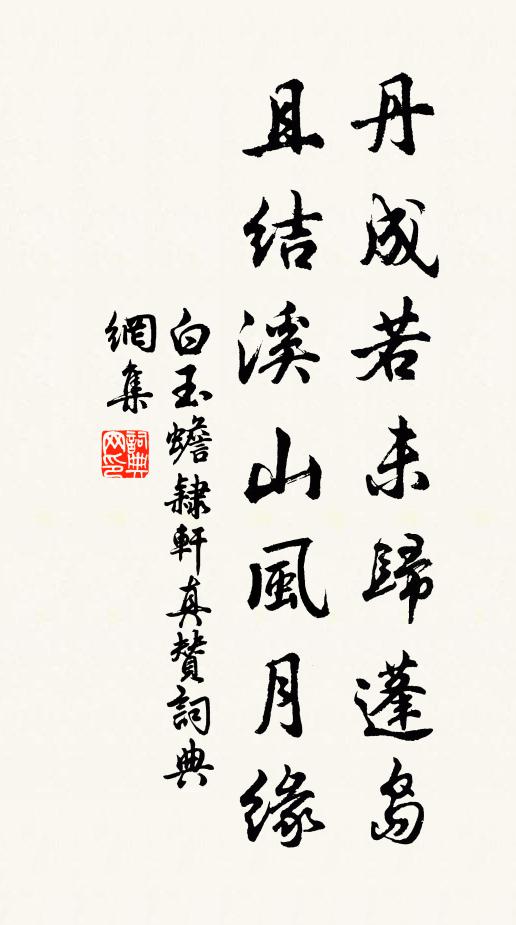 丹成若未歸蓬島
且結溪山風月緣
白玉蟾隸軒真贊詞典
網集
詞典
网印